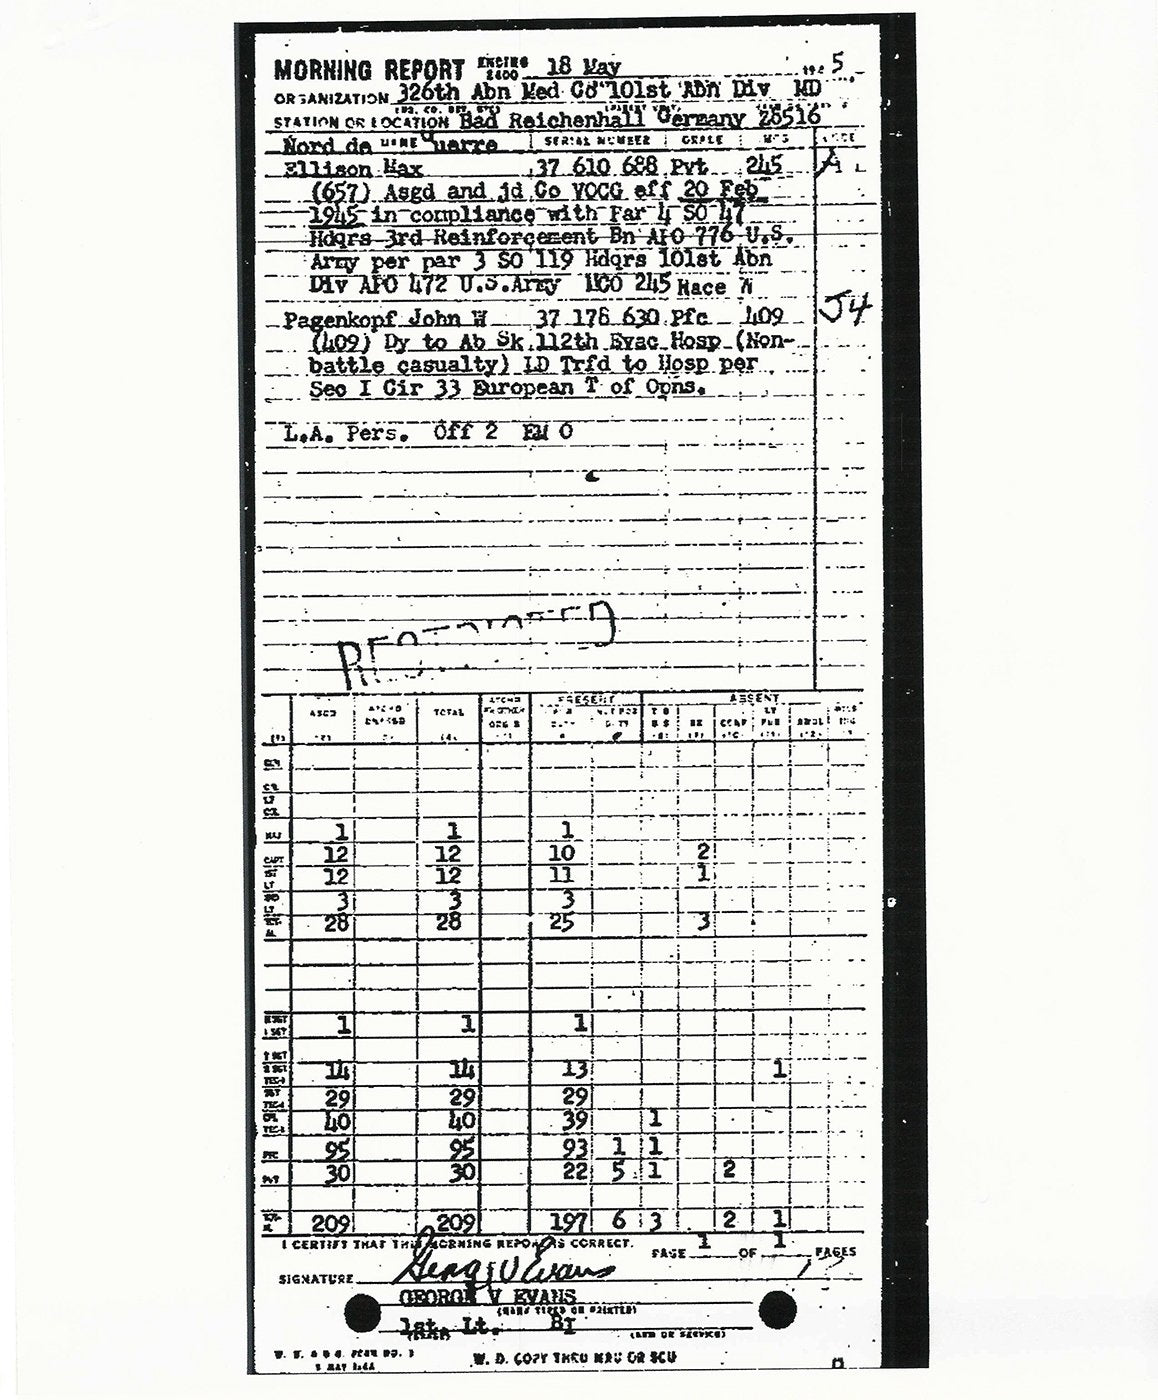 MORNING REPORT ENDING 2400 18 May 1945
ORGANIZATION 326th Abn Med Co 101st Abn Div MD
STATION OR LOCATION Bad Reichenhall Germany Z8516
Nord de Guerre SERIAL NUMBER GRADE MOS CODE
Ellison Max 37 610 688 Pvt 245 A
(657) Asgd and jd Co VOCG eff 20 Feb
1945 in compliance with Par 4 SO 47
Hdqrs 3rd Reinforcement Bn APO 776 U.S.
Army per par 3 SO 119 Hdqrs 101st Abn
Div APO 472 U.S.Army MCO 245 Race W
Pagenkopf John W 37 178 630 Pfc 409 J4
(409) Dy to Ab Sk 112th Evac Hosp (Non-
battle casualty) LD Trfd to Hosp per
Sec I Cir 33 European T of Opns.
L.A. Pers. Off 2 EM 0
RESTRICTED
PRESENT ABSENT
ASGD TOTAL
MAJ 1 1 1
CAPT 12 12 10 2
1ST LT 12 12 11 1
2ND LT 3 3 3
28 28 25 3
M SGT 1 SGT 1 1 1
T SGT
S SGT TEC-3 14 14 13 1
SGT TEC-4 29 29 29
CPL TEC-5 40 40 39 1
PFC 95 95 93 1 1
PVT 30 30 22 5 1 2
209 209 197 6 3 2 1
I CERTIFY THAT THIS MORNING REPORT IS CORRECT. PAGE 1 OF 1 PAGES
SIGNATURE George V Evans
GEORGE V EVANS
(NAME TYPED OR PRINTED)
1st. Lt. BI
(ARM OR SERVICE)
W. D. A.G.O. FORM NO. 1
W. D. COPY THRU MRU OR SCU